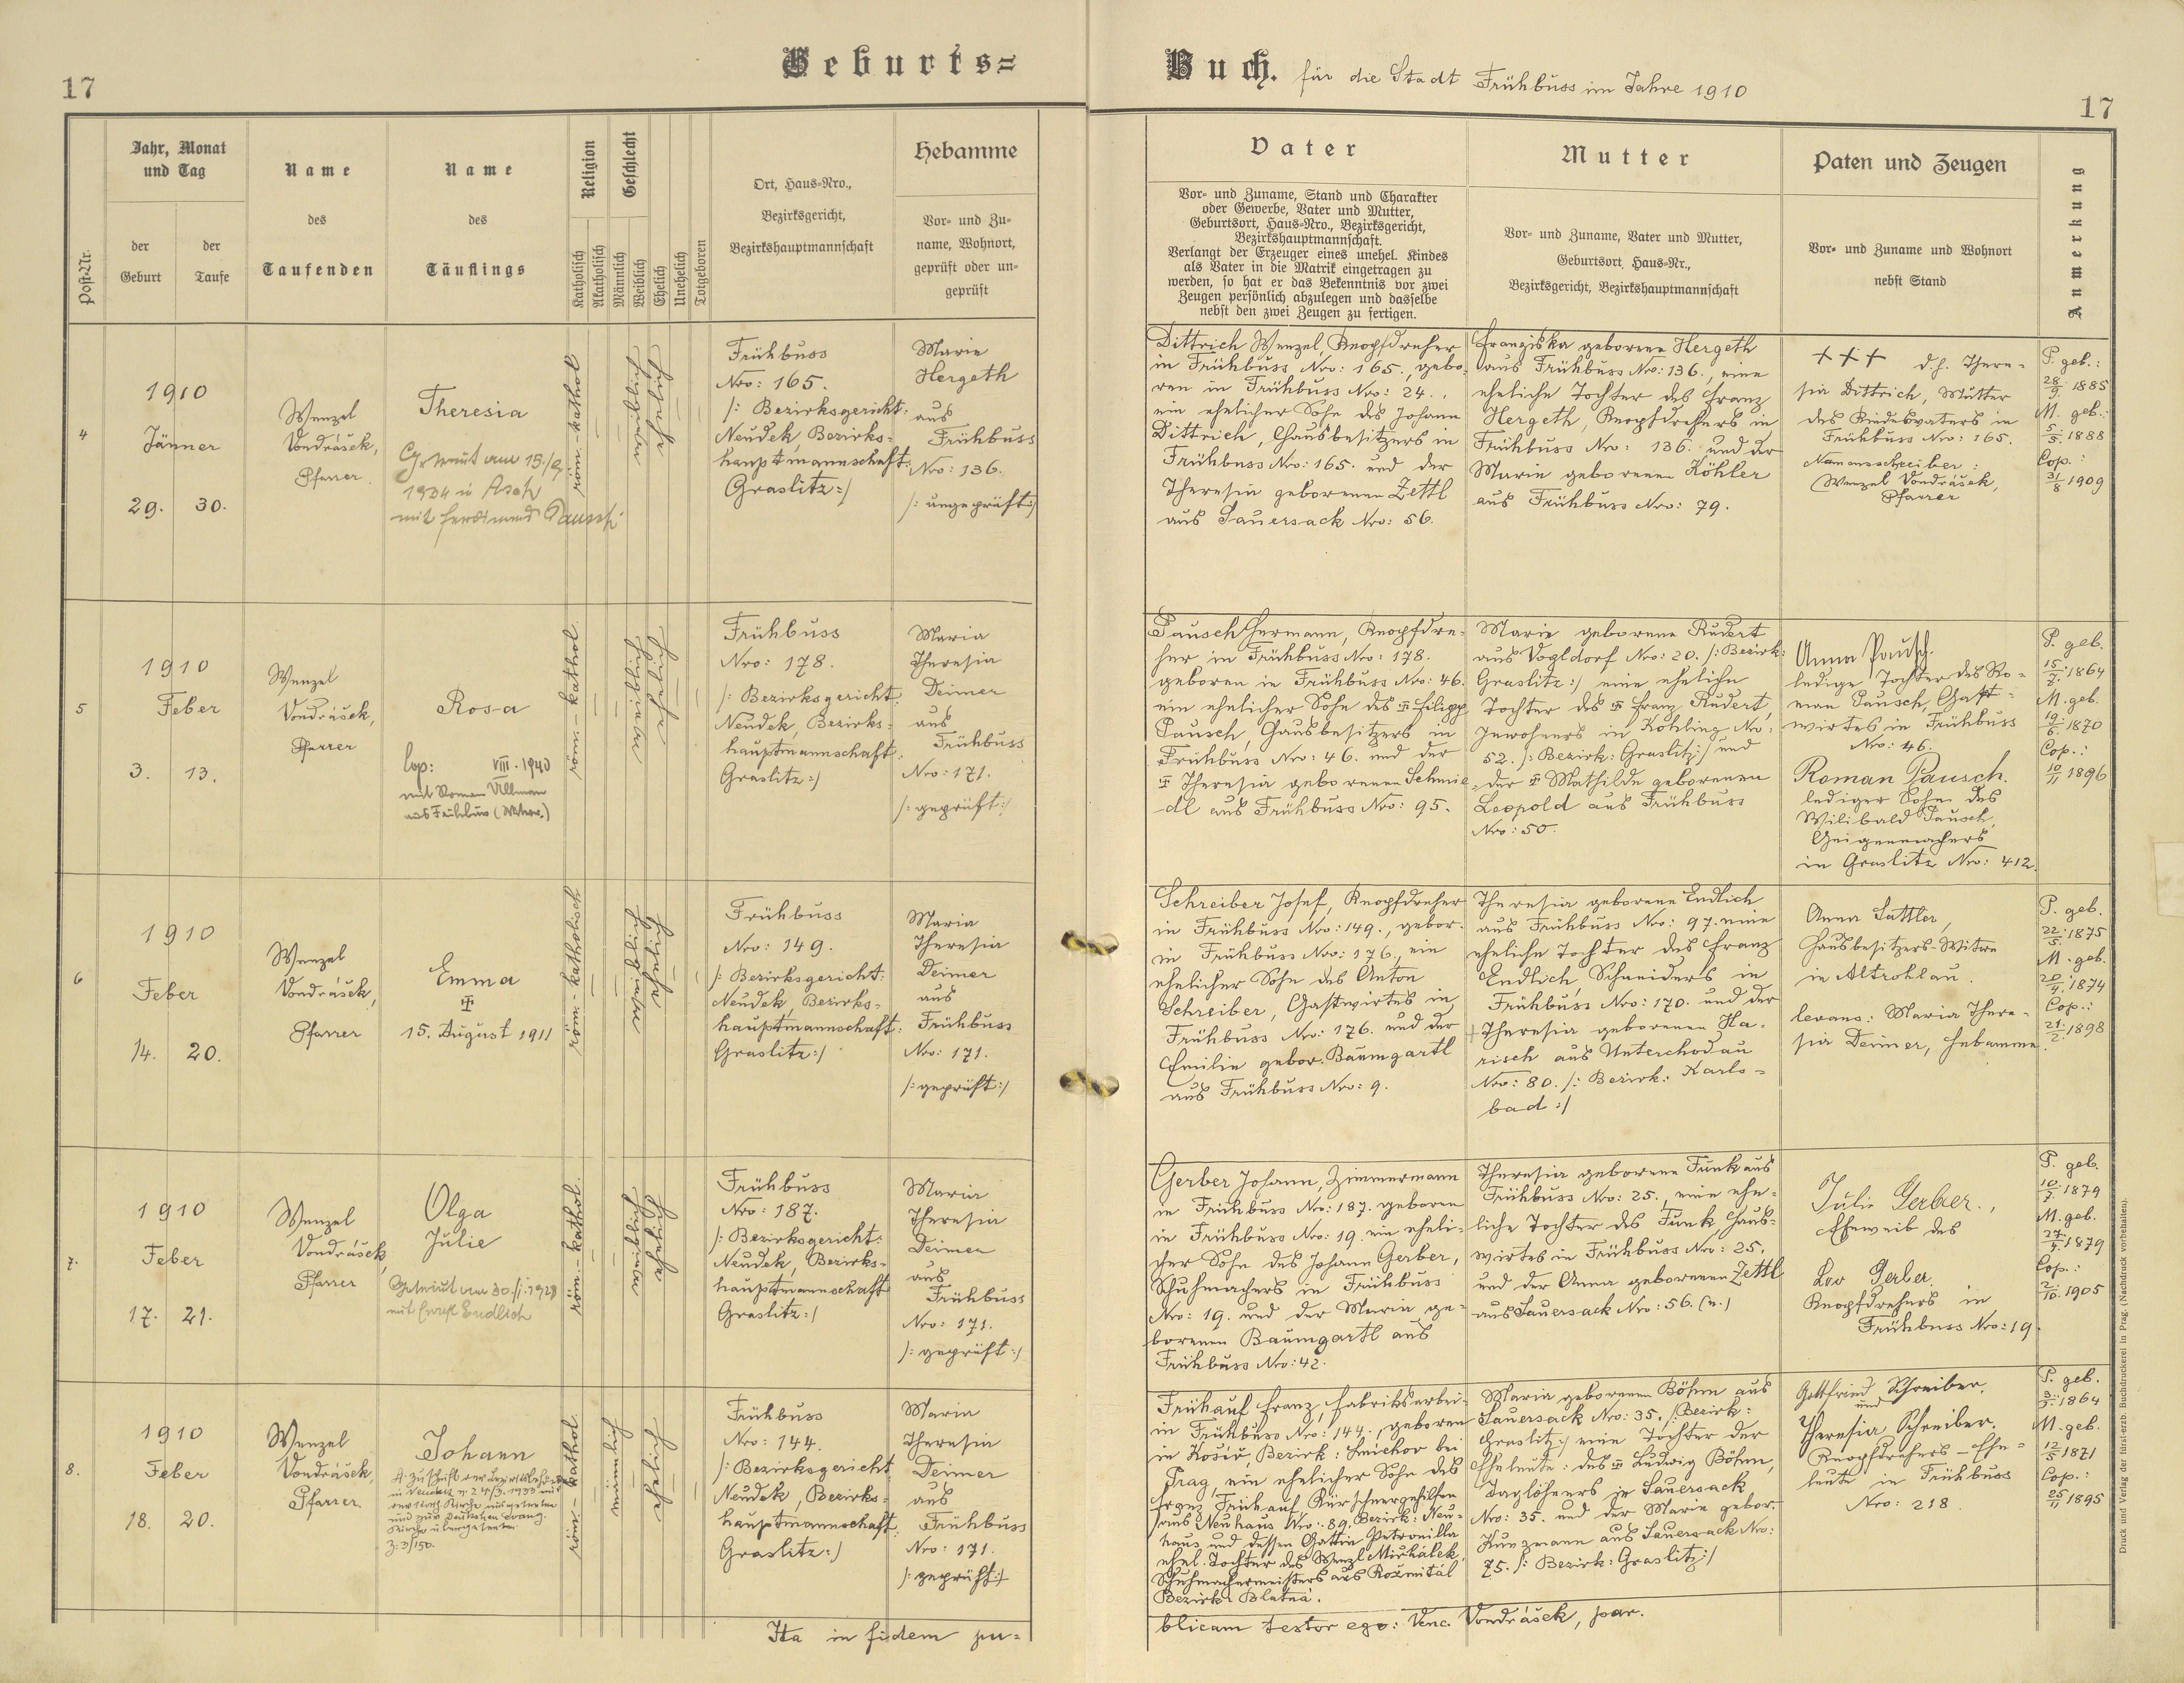 17
Geburts=
Buch. für die Stadt Frühbuss im Jahre 1910
17
Post-Nr.
Jahr, Monat
und Tag
der
Geburt
der
Taufe
Name
des
Taufenden
Name
des
Täuflings
Religion
Katholisch
Akatholisch
Geschlecht
Männlich
Weiblich
Ehelich
Unehelich
Totgeboren
Ort, Haus=Nro.,
Bezirksgericht,
Bezirkshauptmannschaft
Hebamme
Vor= und Zu=
name, Wohnort,
geprüft oder un=
geprüft
Vater
Vor= und Zuname, Stand und Charakter
oder Gewerbe, Vater und Mutter,
Geburtsort, Haus=Nro., Bezirksgericht,
Bezirkshauptmannschaft.
Verlangt der Erzeuger eines unehel. Kindes
als Vater in die Matrik eingetragen zu
werden, so hat er das Bekenntnis vor zwei
Zeugen persönlich abzulegen und dasselbe
nebst den zwei Zeugen zu fertigen.
Mutter
Vor= und Zuname, Vater und Mutter,
Geburtsort, Haus=Nr.,
Bezirksgericht, Bezirkshauptmannschaft
Paten und Zeugen
Vor= und Zuname und Wohnort
nebst Stand
Anmerkung
4
1910
Jänner
29. 30.
Wenzel
Vondrášek,
Pfarrer.
Theresia
Getraut am 15/9
1934 in Asch
mit Ferdinand
röm.-kathol
Frühbuss
Nro: 165.
/: Bezirksgericht:
Neudek, Bezirks=
hauptmannschaft:
Graslitz:/
Marie
Hergeth
aus
Frühbuss
Nro: 136.
/: ungeprüft:/
Dittrich Wenzel, Knopfdreher
in Frühbuss Nro: 165., gebo=
ren in Frühbuss Nro: 24.,
ein ehelicher Sohn des Johann
Dittrich, Hausbesitzers in
Frühbuss Nro: 165. und der
Theresia geborenen Zettl
aus Sauersack Nro: 56.
Franziska geborene Hergeth
aus Frühbuss Nro: 136., eine
eheliche Tochter des Franz
Hergeth, Knopfdrehers in
Frühbuss Nro: 136. und der
Marie geborenen Köhler
aus Frühbuss Nro: 79.
+++ d.h. There=
sia Dittrich, Mutter
des Kindesvaters in
Frühbuss Nro: 165.
Namensschreiber:
Wenzel Vondrášek,
Pfarrer
P. geb.:
28/9 1885
M. geb.:
5/5 1888
Cop.:
31/8 1909
5
1910
Feber
3. 13.
Wenzel
Vondrášek,
Pfarrer
Rosa
Cop: VIII. 1940
mit Roman Ullmann
aus Frühbuss
röm.-kathol.
Frühbuss
Nro: 178.
/: Bezirksgericht:
Neudek, Bezirks=
hauptmannschaft:
Graslitz:/
Maria
Theresia
Deimer
aus
Frühbuss
Nro: 171.
/: geprüft:/
Pausch Hermann, Knopfdre=
her in Frühbuss Nro: 178.
geboren in Frühbuss Nro: 46.
ein ehelicher Sohn des Filipp
Pausch, Hausbesitzers in
Frühbuss Nro: 46. und der
Theresia geborenen Schmie=
dl aus Frühbuss Nro: 95.
Marie geborene Rudert
aus Vogldorf Nro: 20. /: Bezirk:
Graslitz:/ eine eheliche
Tochter des Franz Rudert,
Inwohners in Köhling Nro:
52. /: Bezirk: Graslitz:/ und
der Mathilde geborenen
Leopold aus Frühbuss
Nro: 50.
Anna Pausch.
ledige Tochter des Ro=
man Pausch, Gast=
wirtes in Frühbuss
Nro: 46.
Roman Pausch.
lediger Sohn des
Wilibald Pausch,
Geigenmachers
in Graslitz Nro: 412.
P. geb.
15/2. 1864
M. geb.
19/6. 1870
Cop.:
10/11 1896
6
1910
Feber
14. 20.
Wenzel
Vondrášek,
Pfarrer
Emma
15. August 1911
röm.-katholisch
Frühbuss
Nro: 149.
/: Bezirksgericht:
Neudek, Bezirks=
hauptmannschaft:
Graslitz:/
Maria
Theresia
Deimer
aus
Frühbuss
Nro: 171.
/: geprüft:/
Schreiber Josef, Knopfdreher
in Frühbuss Nro: 149., gebor.
in Frühbuss Nro: 176., ein
ehelicher Sohn des Anton
Schreiber, Gastwirtes in
Frühbuss Nro: 176. und der
Emilie gebor. Baumgartl
aus Frühbuss Nro: 9.
Theresia geborene Endlich
aus Frühbuss Nro: 97. eine
eheliche Tochter des Franz
Endlich, Schneiders in
Frühbuss Nro: 170. und der
+ Theresia geborenen Ha=
risch aus Unterchodau
Nro: 80. /: Bezirk: Karls=
bad:/
Anna Sattler,
Hausbesitzers=Witwe
in Altrohlau.
levans: Maria There=
sia Deimer, Hebamme.
P. geb.
22/5. 1875
M. geb.
20/4. 1874
Cop.:
21/2. 1898
7.
1910
Feber
17. 21.
Wenzel
Vondrášek
Pfarrer
Olga
Julie
Getraut am 30./ 1928
mit Ernst Endlich
röm.-kathol.
Frühbuss
Nro: 187.
/: Bezirksgericht:
Neudek, Bezirks=
hauptmannschaft
Graslitz:/
Maria
Theresia
Deimer
aus
Frühbuss
Nro: 171.
/: geprüft:/
Gerber Johann, Zimmermann
in Frühbuss Nro: 187. geboren
in Frühbuss Nro: 19. ein eheli=
cher Sohn des Johann Gerber,
Schuhmachers in Frühbuss
Nro: 19. und der Maria ge=
borenen Baumgartl aus
Frühbuss Nro: 42.
Theresia geborene Funk aus
Frühbuss Nro: 25., eine ehe=
liche Tochter des Funk, Haus=
wirtes in Frühbuss Nro: 25.
und der Anna geborenen Zettl
aus Sauersack Nro: 56.
Julie Gerber.,
Eheweib des
Leo Gerber.
Knopfdrehers in
Frühbuss Nro: 19.
P. geb.
10/7. 1879
M. geb.
27/4. 1879
Cop.:
2/10. 1905
8.
1910
Feber
18. 20.
Wenzel
Vondrášek,
Pfarrer.
Johann
röm.-kathol
männlich
Frühbuss
Nro: 144.
/: Bezirksgericht
Neudek, Bezirks=
hauptmannschaft:
Graslitz:/
Maria
Theresia
Deimer
aus
Frühbuss
Nro: 171.
/: geprüft:/
Frühauf Franz, Fabriksarbei=
in Frühbuss Nro: 144., geboren
in Košíř, Bezirk: Smichov bei
Prag, ein ehelicher Sohn des
Franz Frühauf, Kürschnergehilfen
aus Neuhaus Nro: 89. Bezirk: Neu=
haus und dessen Gattin Petronilla
ehel. Tochter des Wenzl Michálek,
Schuhmachermeisters aus Rožmitál
Bezirk: Blatná.
Maria geborenen Böhm aus
Sauersack Nro: 35. /: Bezirk:
Graslitz:/ eine Tochter der
Eheleute: des Ludwig Böhm,
Taglöhners in Sauersack
Nro: 35. und der Marie gebor.
Kunzmann aus Sauersack Nro:
75. /: Bezirk: Graslitz:/
Gottfried Schreiber.
und
Theresia Schreiber.
Knopfdrehers=Ehe=
leute in Frühbuss
Nro: 218.
P. geb.
3/3. 1864
M. geb.
12/5 1871
Cop.:
25/11 1895
Ita in fidem pu=
blicam testor ego: Venc. Vondrášek, par.
Druck und Verlag der fürst-erzb. Buchdruckerei in Prag. (Nachdruck vorbehalten).